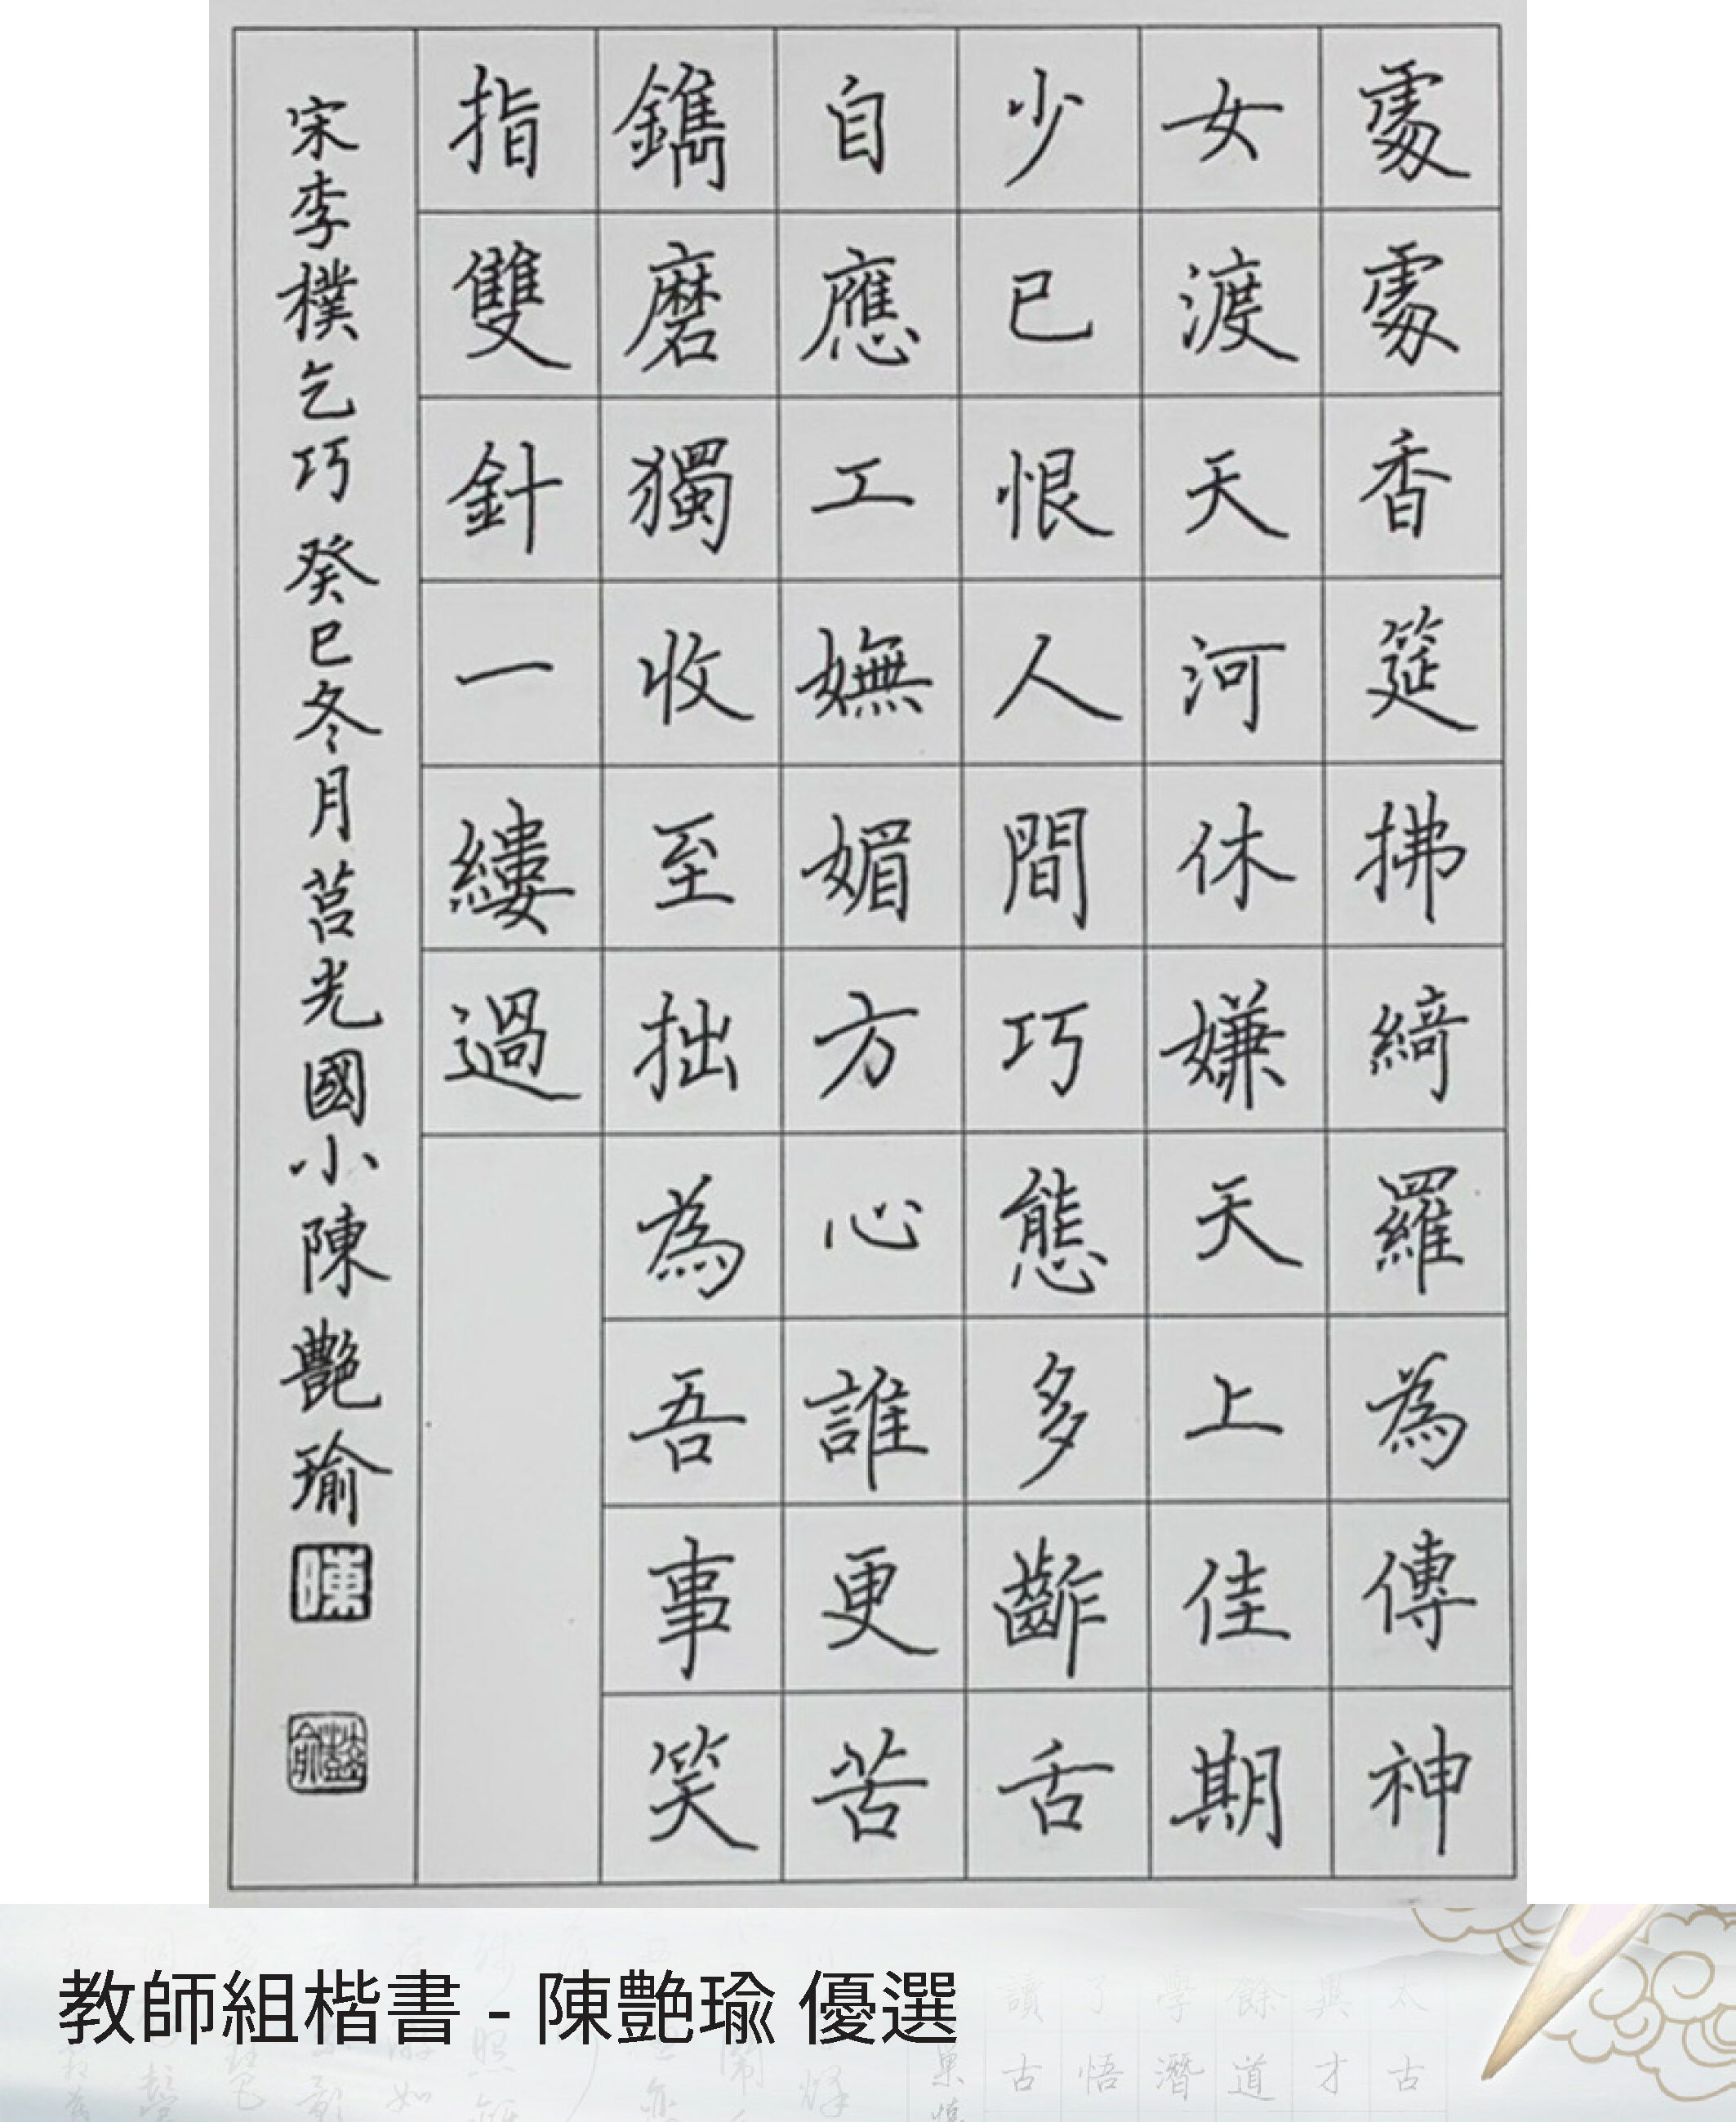 處處香筵拂綺羅為傳神
女渡天河休嫌天上佳期
少已恨人間巧態多齚舌
自應工嫵媚方心誰更苦
鐫磨獨收至拙為吾事笑
指雙針一縷過
宋李樸乞巧 癸巳冬月莒光國小陳艷瑜
陳
艷瑜
教師組楷書 - 陳艷瑜 優選